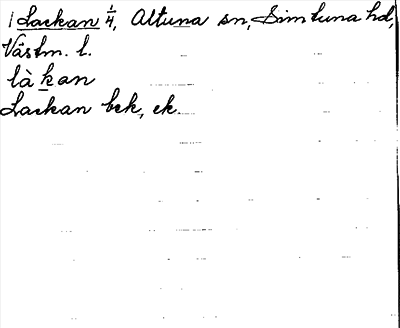 Lackan 1/4, Altuna sn, Simtuna hd,
Västm. l.
làkan
Lackan bek, ek.